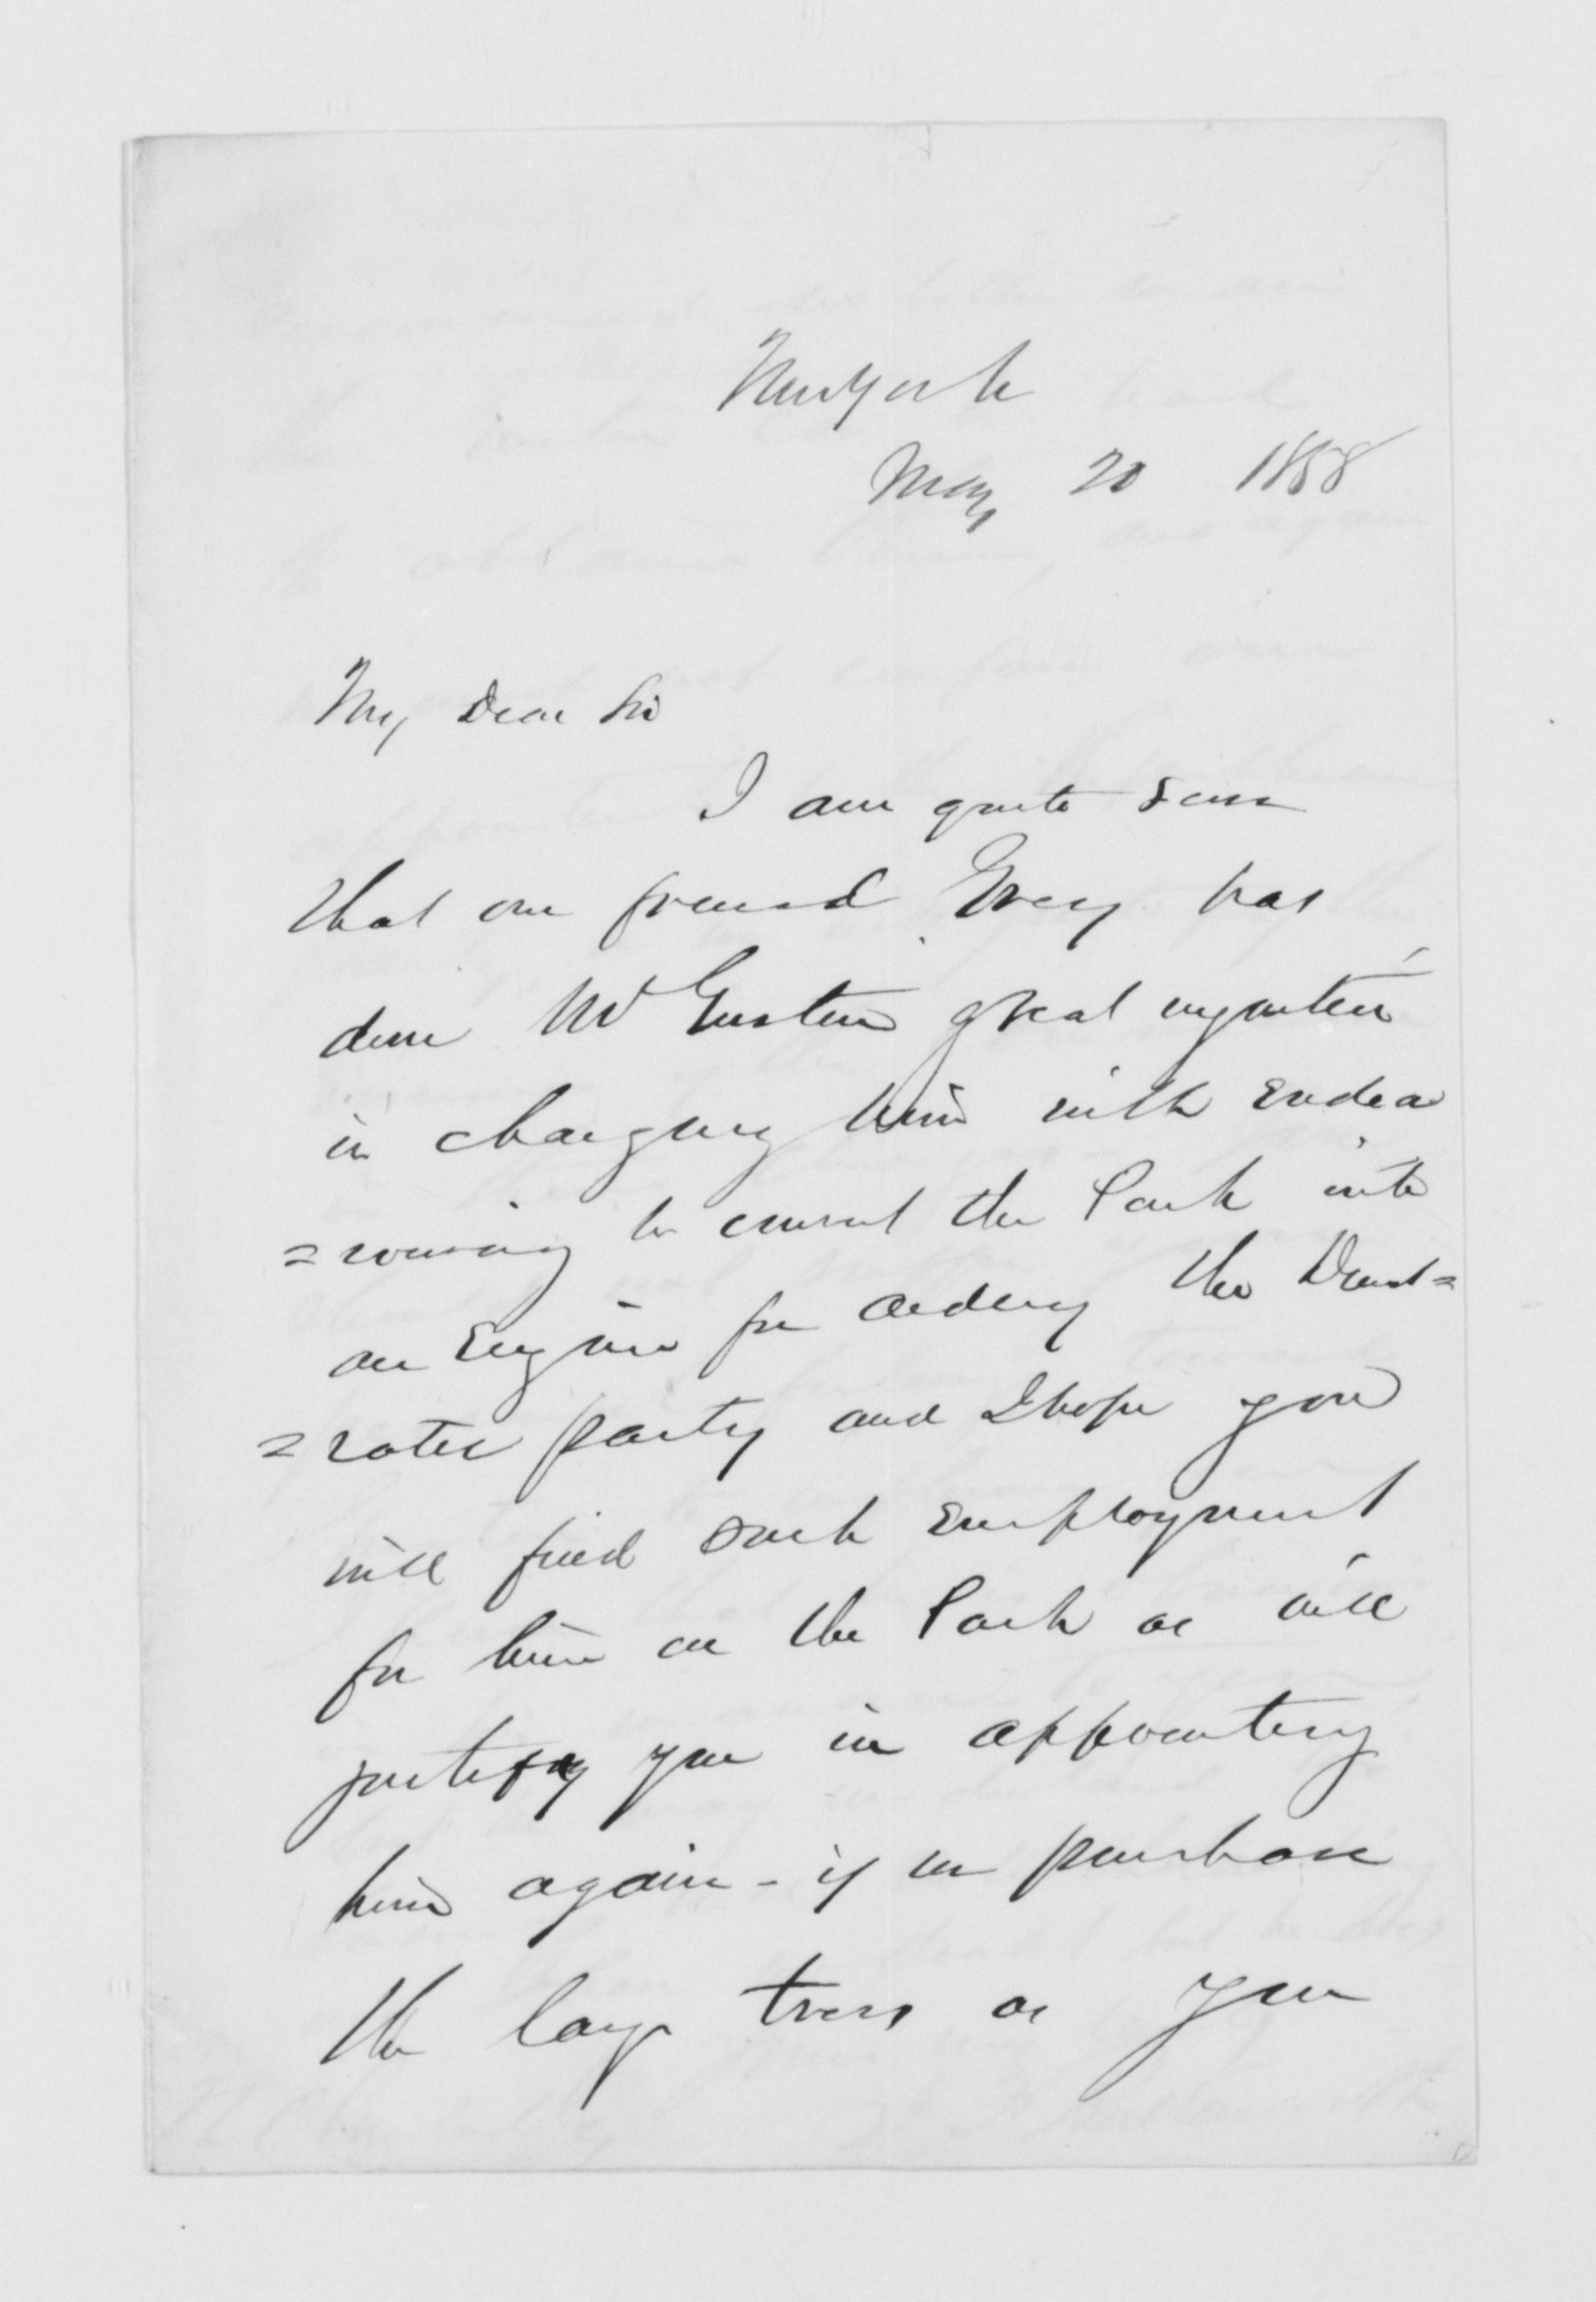 New York
May 20 1858
My Dear Sir
I am quite sure
that our friend has
done Mr great injustice
in charging him with endea
=vouring to convert the Park into
an Engine for aiding the Demo=
=cratic party and I hope you
will find such Employment
for him on the Park as will
justify you in appointing
him again - if we purchase
the large trees as you